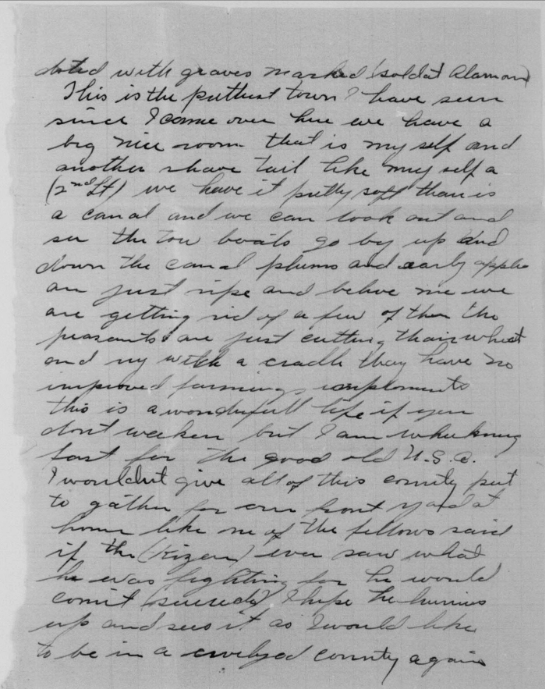 doted with graves marked (soldat Alamand)
This is the puttiest town I have seen
since I come over here we have a
big nice room that is my self and
another shave tail like my self a
(2nd Lt) we have it pretty soft thair is
a canal and we can look out and
see the tow boats go by up and
down the canal plums and early apples
are just ripe and beleve me we
are getting rid of a few of them the
peasants are just cutting thair wheat
and ry with a cradle they have no
improved farming implements
this is a wonderfull life if you
dont weaken but I am
fast for the good old U.S.A.
I wouldnt give all of this county put
to gather for our front yard at
home like one of the fellows said
if the (Kizer) ever saw what
he was fighting for he would
comit (sucide) I hope he hurries
up and sees it as I would like
to be in a county again